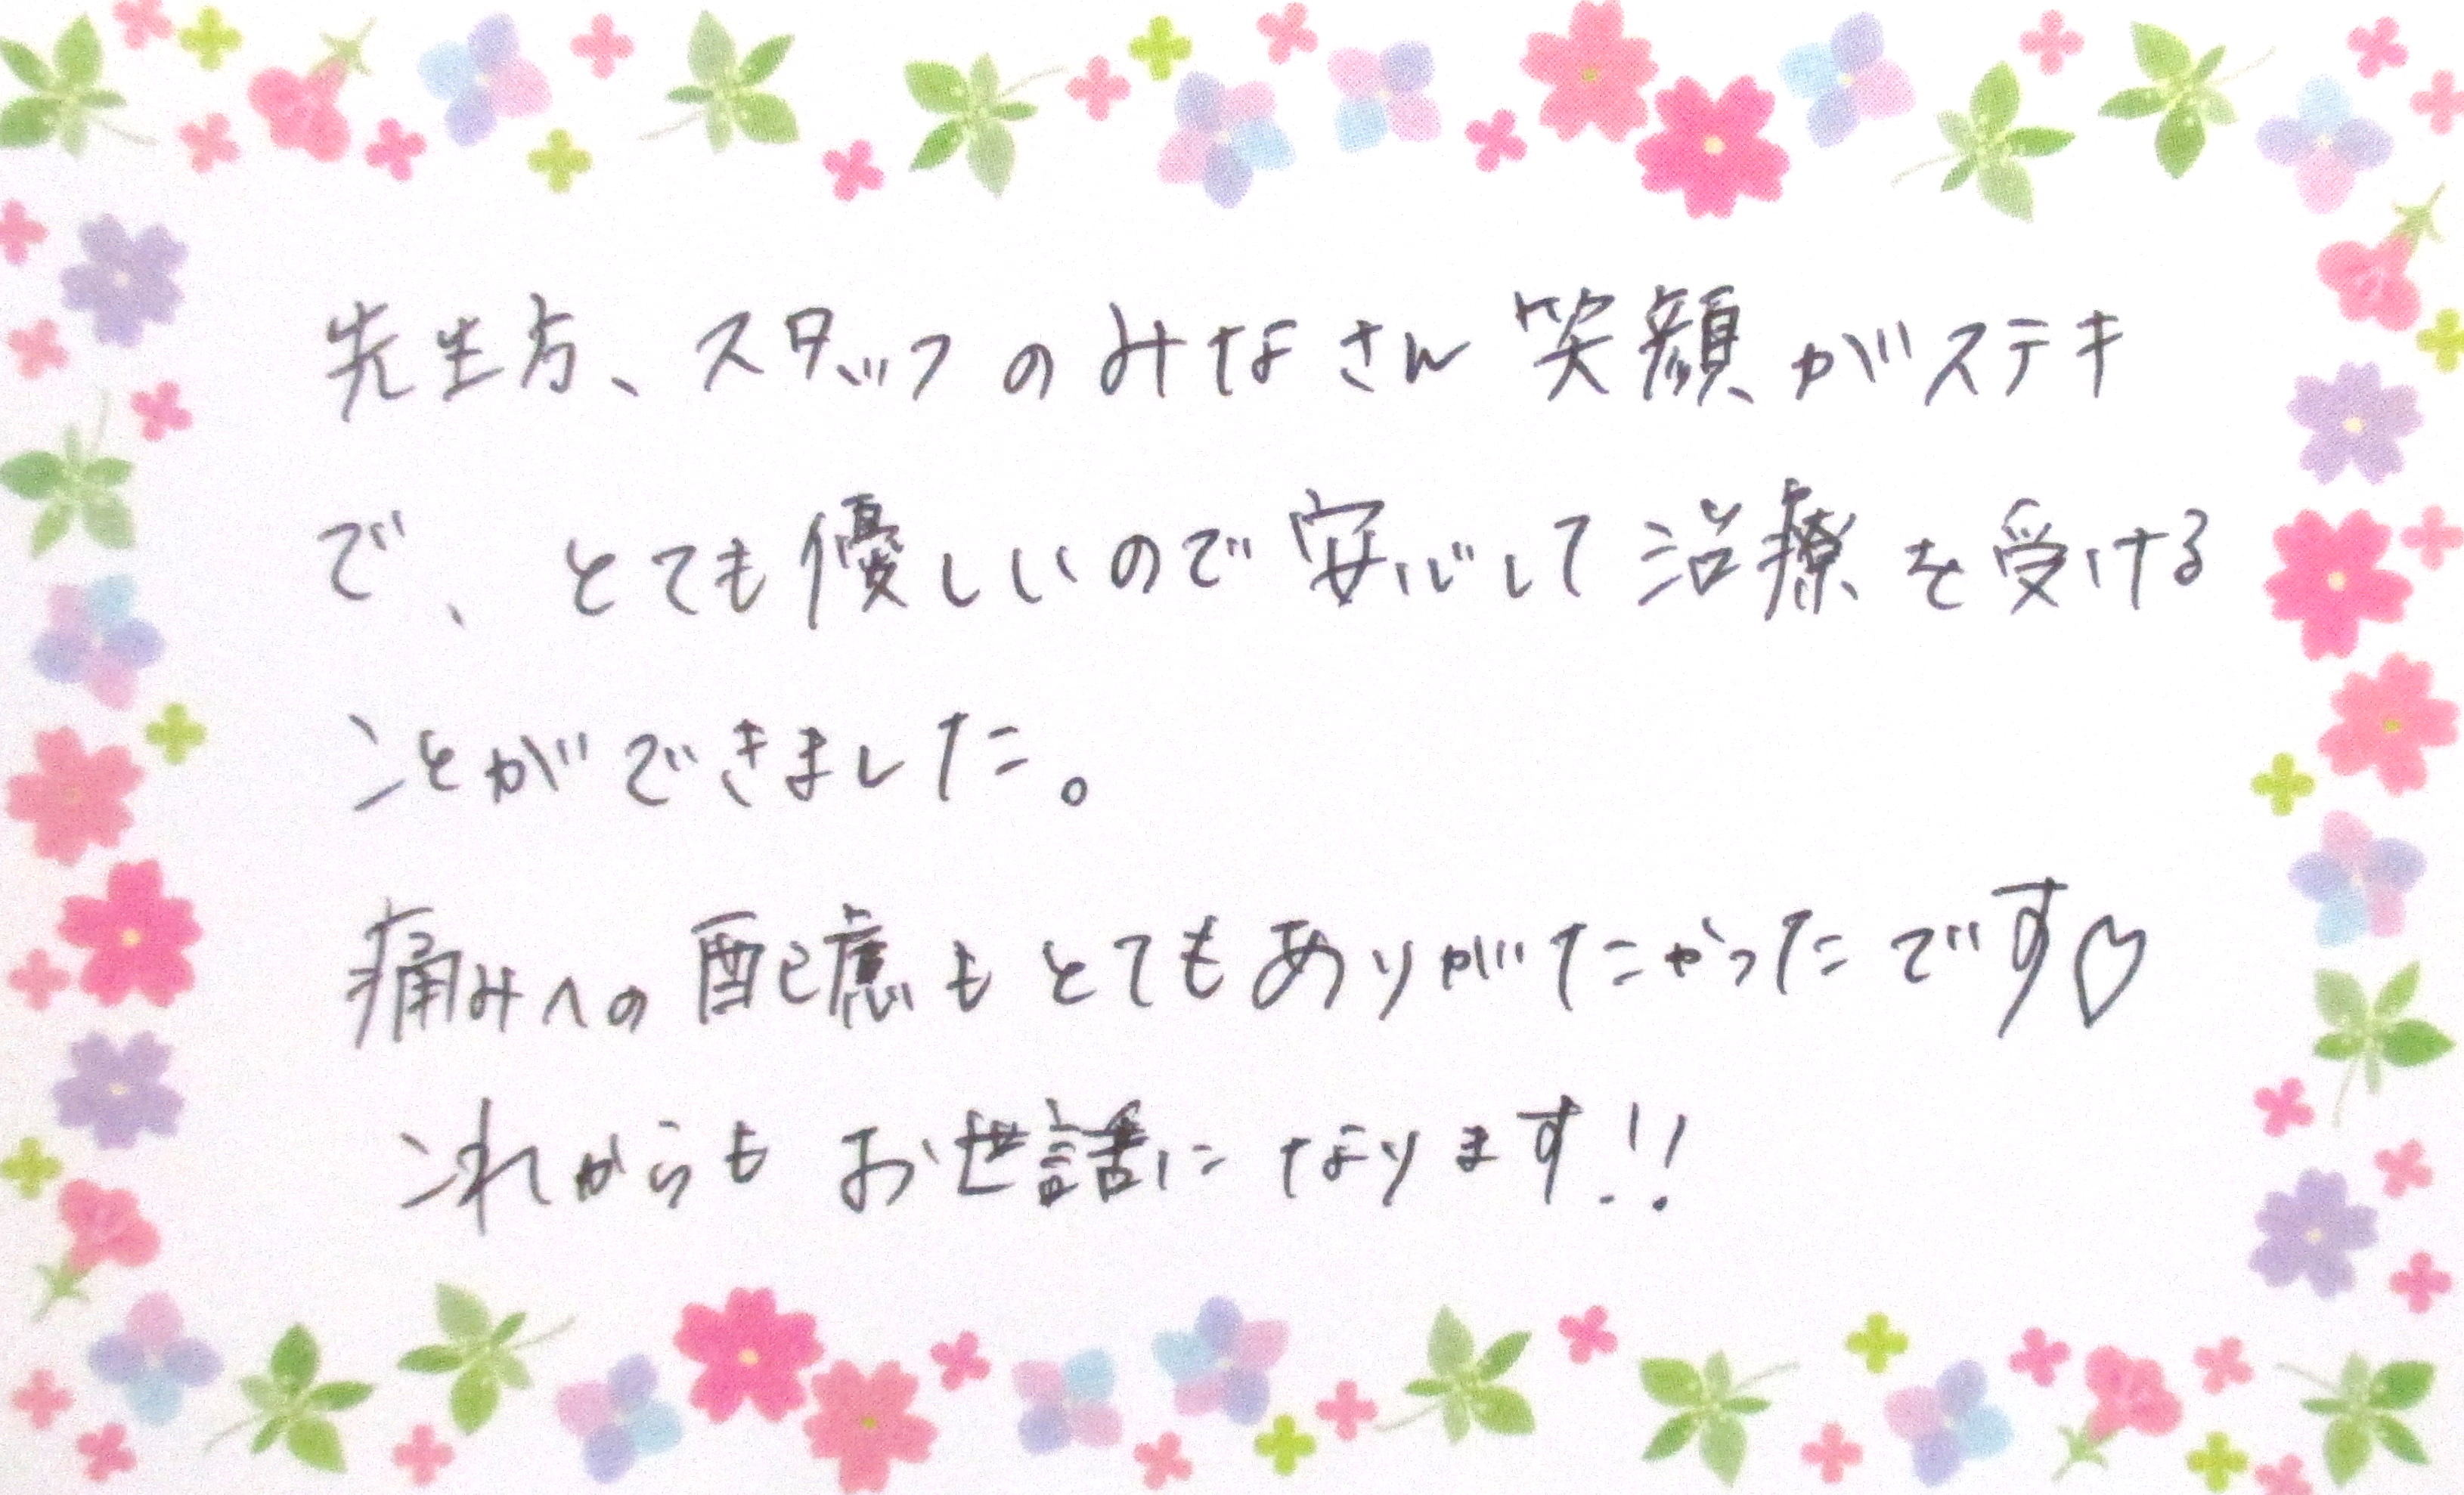 先生方、スタッフのみなさん笑顔がステキ
で、とても優しいので安心して治療を受ける
ことができました。
痛みへの配慮もとてもありがたかったです♡
これからもお世話になります!!